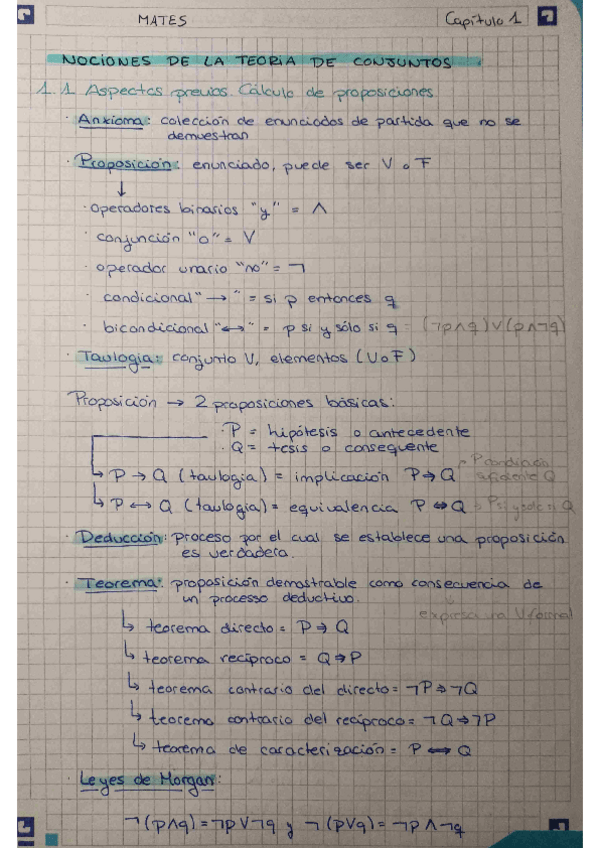 MATES
Capítulo 1
NOCIONES DE LA TEORIA DE CONJUNTOS
1.1 Aspectos previos. Cálculo de proposiciones
· Anxioma: colección de enunciados de partida que no se
demuestran
· Proposición: enunciado, puede ser V o F
↓
· operadores binarios "y" = ∧
· conjunción "o" = V
· operador unario "no" = ¬
· condicional "→" = si p entonces q
· bicondicional "↔" = p si y sólo si q = (¬p∧q)∨(p∧¬q)
· Taulogia: conjunto V, elementos (V o F)
Proposición → 2 proposiciones básicas:
· P = hipótesis o antecedente
· Q = tesis o consequente
↳ P → Q (taulogia) = implicación P⇒Q P condición
suficiente Q
↳ P ↔ Q (taulogia) = equivalencia P ⇔ Q P si y solo si Q
· Deducción: proceso por el cual se establece una proposición
es verdadera.
· Teorema: proposición demostrable como consecuencia de
un processo deductivo.
expresa una V formal
↳ teorema directo = P ⇒ Q
↳ teorema recíproco = Q⇒P
↳ teorema contrario del directo = ¬P⇒¬Q
↳ teorema contrario del recíproco = ¬Q⇒¬P
↳ teorema de caracterización = P ⇔ Q
· Leyes de Morgan:
¬(p∧q) = ¬p∨¬q y ¬(p∨q) = ¬p∧¬q